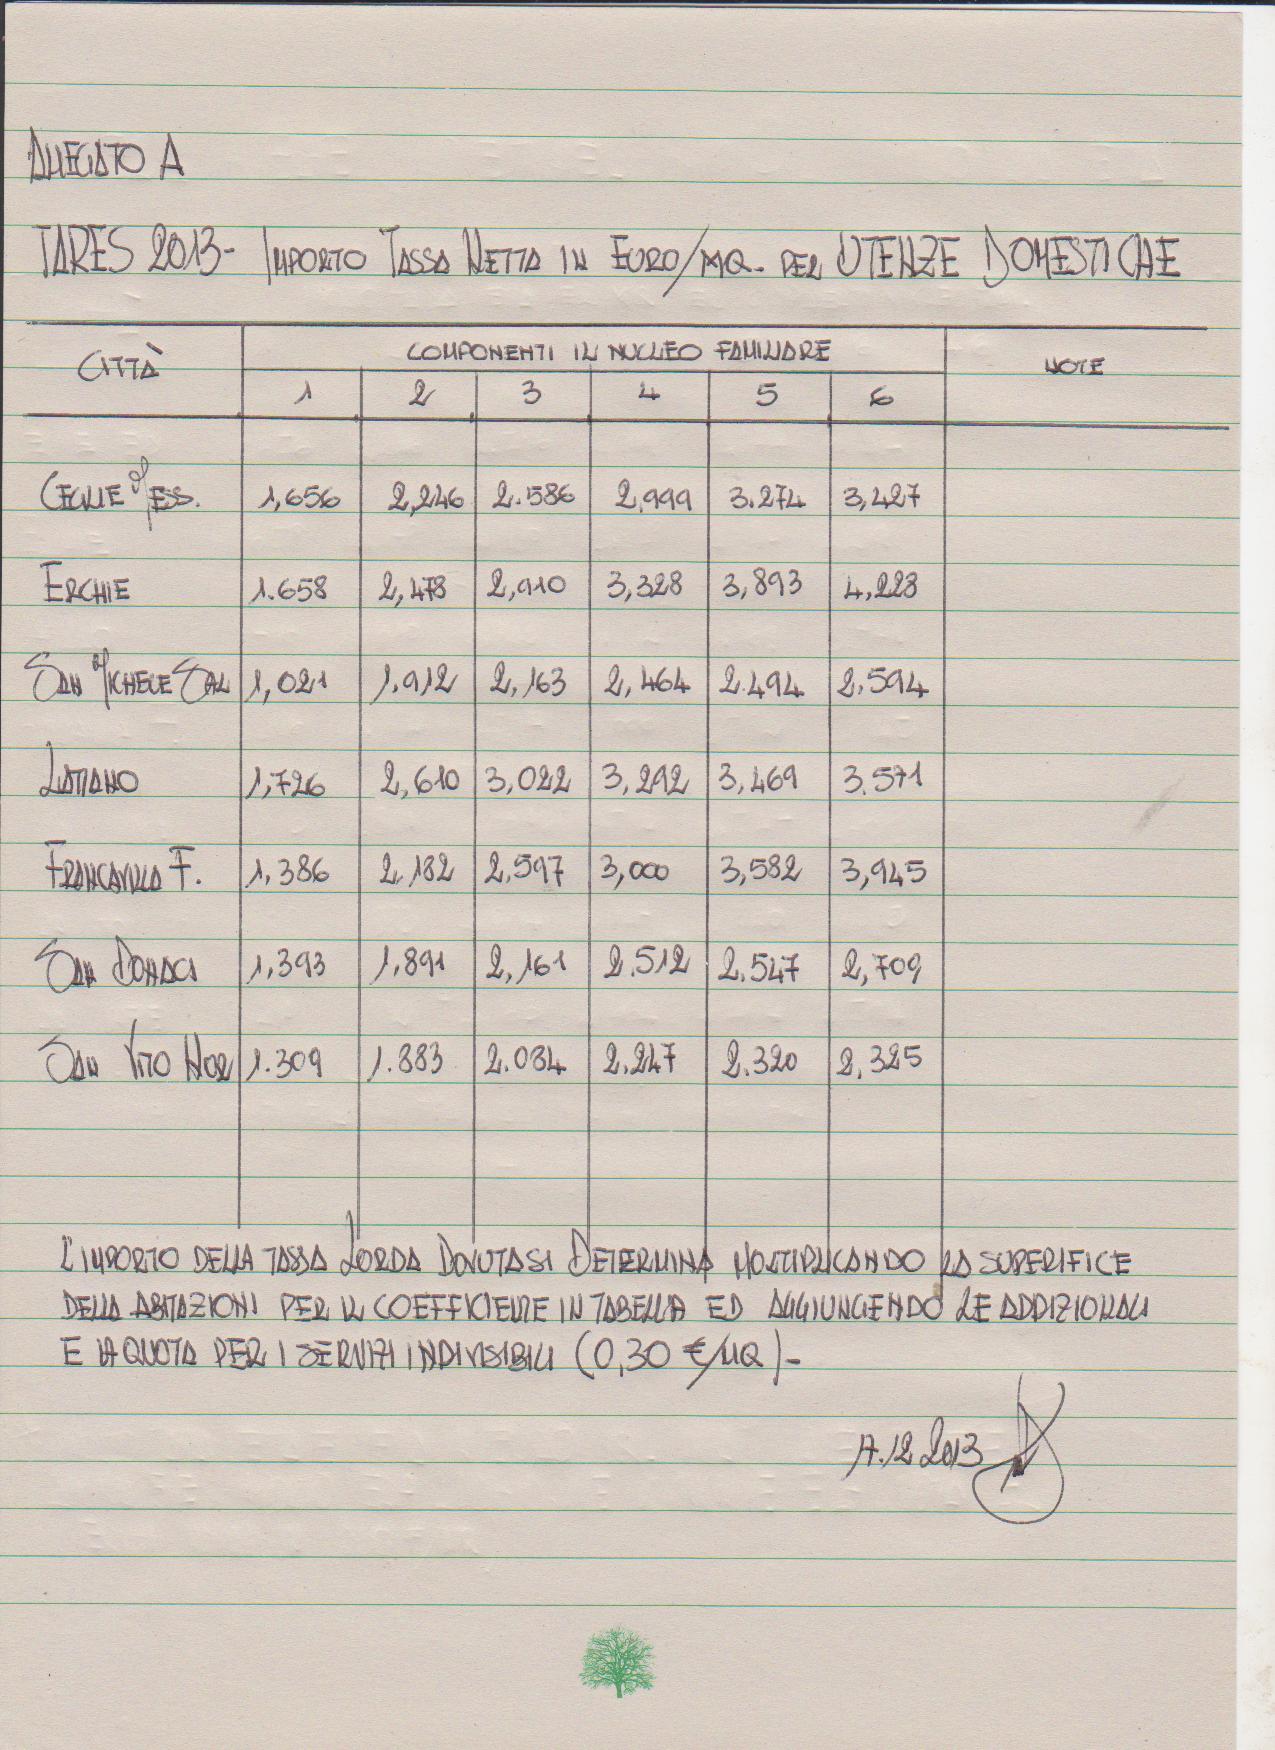 ALLEGATO A
TARES 2013- IMPORTO TASSA NETTA IN EURO/MQ- PER UTENZE DOMESTICHE
CITTÀ COMPONENTI IL NUCLEO FAMILIARE NOTE
1 2 3 4 5 6
CEGLIE MESS. 1,656 2,246 2.586 2,999 3.274 3,427
ERCHIE 1.658 2,478 2,910 3,328 3,893 4,228
SAN MICHELE SAL 1,021 1,912 2,163 2,464 2.494 2.594
LATIANO 1,726 2,610 3,022 3,292 3,469 3.571
FRANCAVILLA F. 1,386 2.182 2,597 3,000 3,582 3,945
SAN DONACI 1,393 1,891 2,161 2.512 2.547 2,709
SAN VITO NOR 1.309 1.883 2.084 2.247 2.320 2,325
L'IMPORTO DELLA TASSA LORDA DOVUTA SI DETERMINA MOLTIPLICANDO LA SUPERIFICE
DELLA ABITAZIONI PER IL COEFFICIENTE IN TABELLA ED AGGIUNGENDO LE ADDIZIONALI
E LA QUOTA PER I SERVIZI INDIVISIBILI (0,30 €/MQ)-
17.12 2013